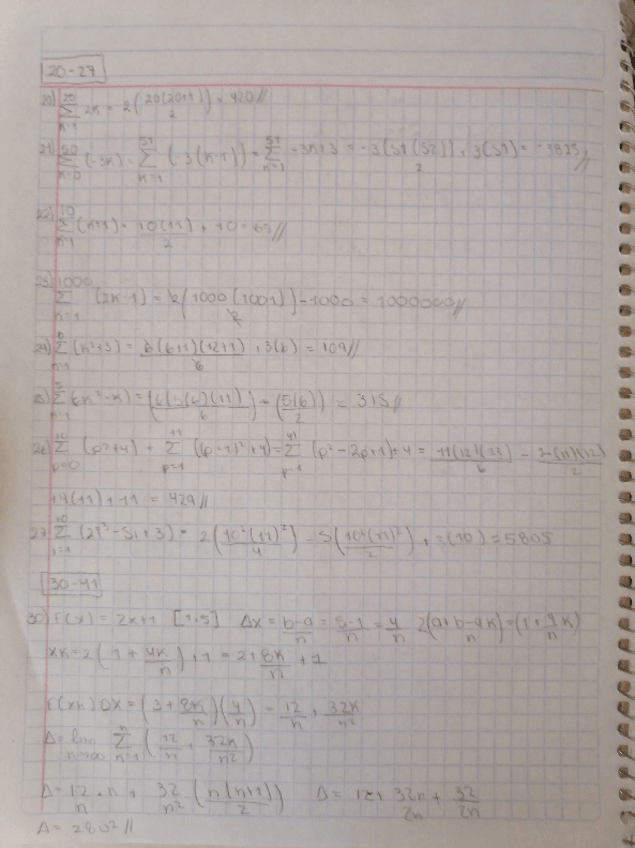 20-27
20) 20 Σ n=1 2k = 2(20(20+1)/2) = 420//
21) 50 Σ k=0 (-3k) = 51 Σ k=1 (-3(k-1)) = 51 Σ k=1 -3k+3 = -3(51(52))/2 + 3(51) = -3825//
22) 10 Σ k=1 (k+1) = 10(11)/2 + 10 = 65//
23) 1000 Σ k=1 (2k-1) = 2(1000(1001)/2) - 1000 = 1000000//
24) 6 Σ k=1 (k²+3) = 6(6+1)(12+1)/6 + 3(6) = 109//
25) 5 Σ k=1 (6k²-k) = (6(5(6)(11)/6) - (5(6)/2) = 315//
26) 10 Σ p=0 (p²+4) = 11 Σ p=1 ((p-1)²+4) = 11 Σ p=1 (p²-2p+1)+4 = 11(12)(23)/6 - 2(11)(12)/2
+4(11)+11 = 429//
27) 10 Σ i=1 (2i³-5i+3) = 2(10²(11)²/4) - 5(10²(11)²/2) + 3(10) = 5805
30-41
30) f(x) = 2x+1 [1,5] Δx = b-a/n = 5-1/n = 4/n 2(a+b-ak/n) = (1+4/n k)
xk = 2(1+4k/n)+1 = 2+8k/n+1
f(xk)Δx = (3+8k/n)(4/n) = 12/n + 32k/n²
A = lim n→∞ n Σ k=1 (12/n + 32k/n²)
A = 12/n · n + 32/n² (n(n+1)/2) A = 12+32n/2n + 32/2n
A = 28u²//